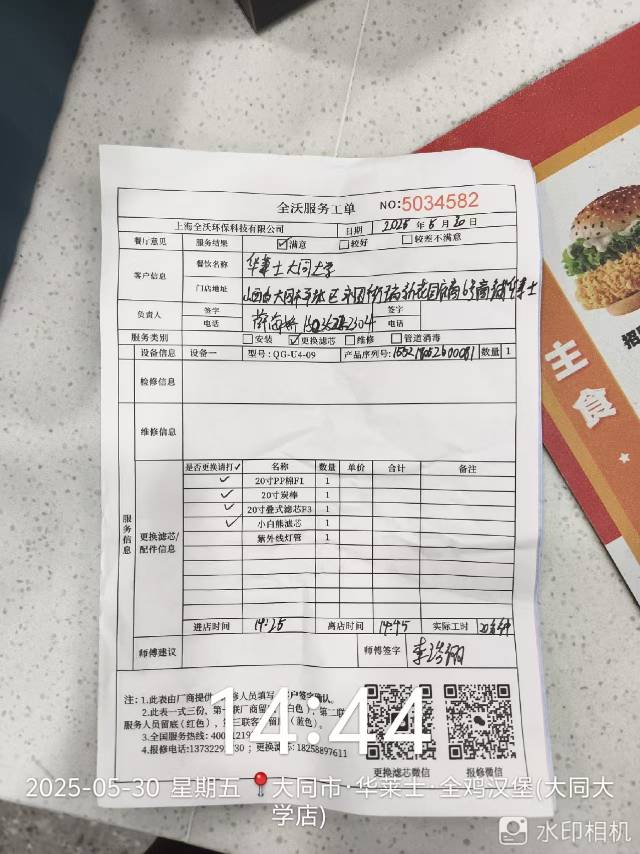 全沃服务工单 NO:5034582
上海全沃环保科技有限公司 日期 2025 年 5 月 30 日
餐厅意见 服务结果 ☑满意 □较好 □较差不满意
客户信息 餐饮名称 华莱士大同大学
门店地址
负责人 签字 签字
电话 电话
服务类别 □安装 ☑更换滤芯 □维修 □管道消毒
设备信息 设备一 型号:QG-U4-09 产品序列号: 数量 1
检修信息
维修信息
服务信息
更换滤芯/配件信息
是否更换请打✓ 名称 数量 单价 合计 备注
✓ 20寸PP棉F1 1
✓ 20寸炭棒 1
✓ 20寸叠式滤芯F3 1
✓ 小白熊滤芯 1
紫外线灯管 1
进店时间 14:25 离店时间 14:45 实际工时
师傅建议 师傅签字
注:1.此表由厂商提供
2.此表一式三份、第一联厂商留
服务人员留底(红色)、 留底(蓝色)。
3.全国服务热线:
4.报修电话: ; 更换滤芯: 18258897611
更换滤芯微信 报修微信
14:44
2025-05-30 星期五 大同市·华莱士·全鸡汉堡(大同大
学店)
水印相机
主食